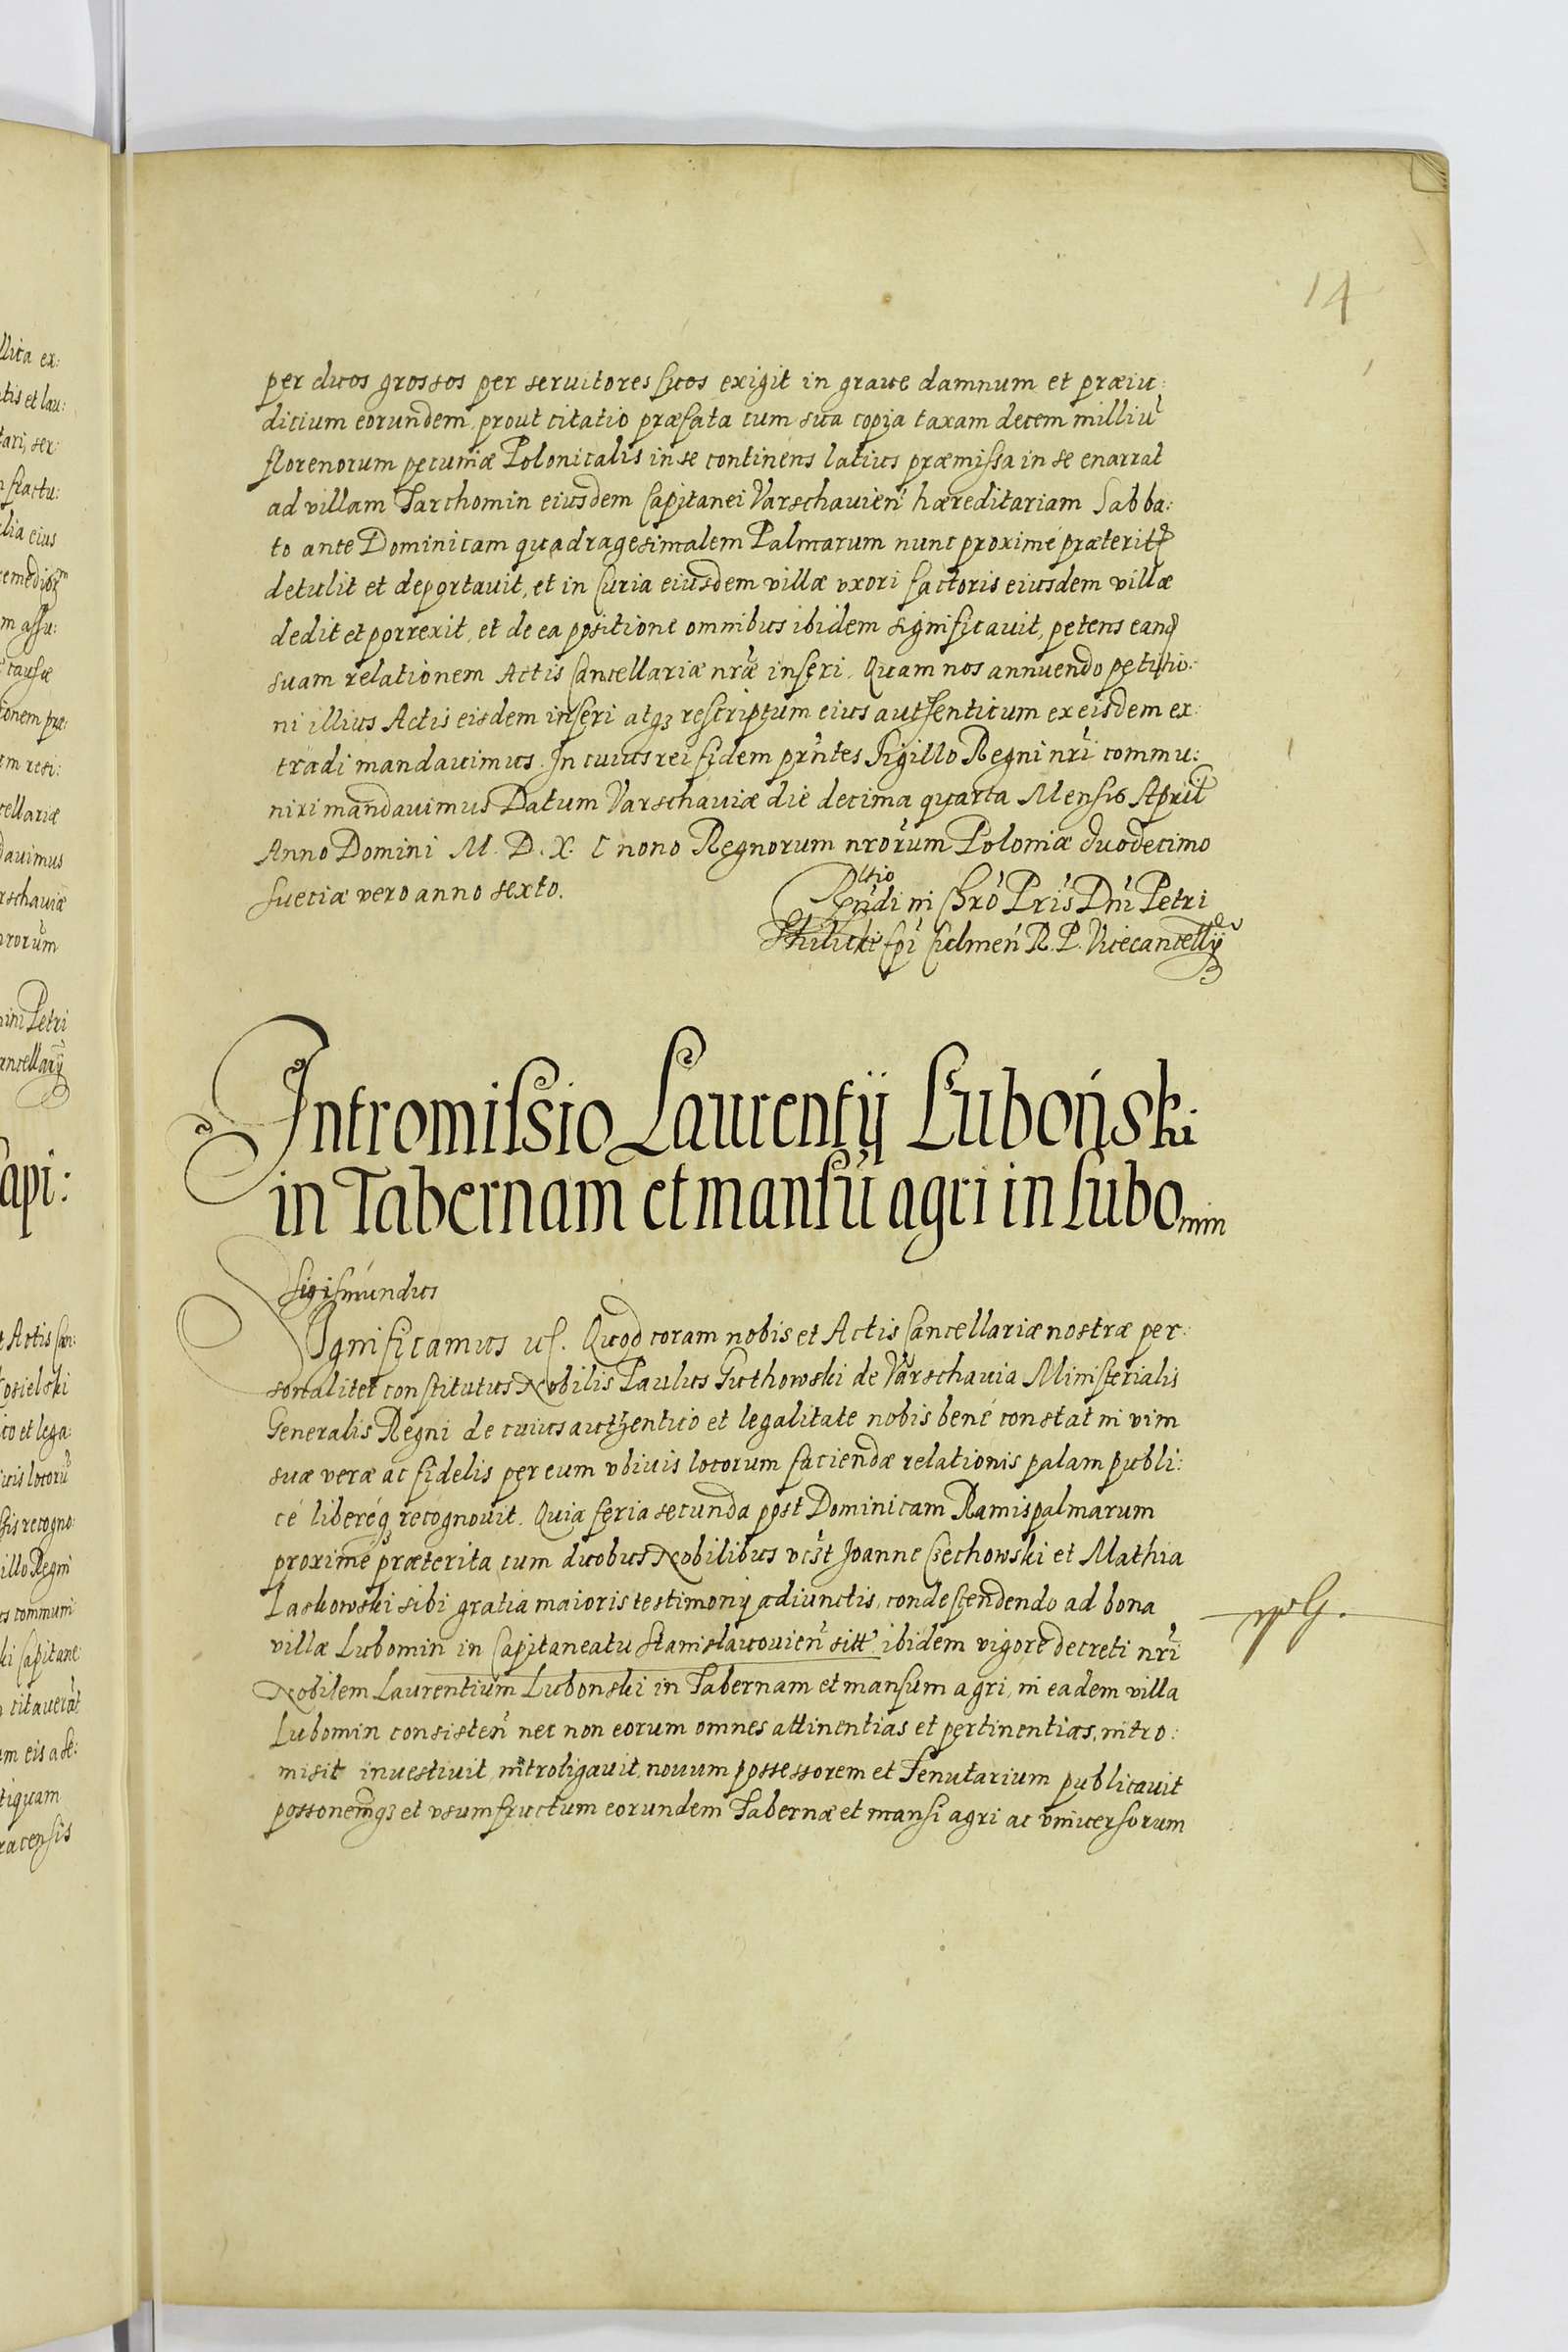 14
per duos grossos per seruitores suos exigit in graue damnum et præiu:
dicium eorundem, prout citatio præfata cum sua copia taxam decem milliū
florenorum pecuniæ Polonicalis in se continens latius præmissa in se enarrat
ad villam Tarchomin eiusdem Capitanei Varschauien̄ hæreditariam Sabba:
to ante Dominicam quadragesimalem Palmarum nunc proximé præterit
detulit et deportauit, et in Curia eiusdem villæ vxori factoris eiusdem villæ
dedit et porrexit, et de ea positione omnibus ibidem significauit, petens eand
suam relationem Actis Cancellariæ nr̄æ inseri. Quam nos annuendo petitio:
ni illius Actis eisdem inseri atq₃ rescriptum eius authenticum ex eisdem ex:
tradi mandauimus. In cuius rei fidem prn̄tes Sigillo Regni nr̄i commu:
niri mandauimus Datum Varschauiæ die decima quarta Mensis April
Anno Domini M. D. X. C nono Regnorum nrōrum Poloniæ duodecimo
Sueciæ vero anno sexto.
Rn̄di in Chrō Prīs Dn̄i Petri
Thilicki Ep̄i Culmen̄ R. P. Vicecancellÿ
Intromissio Laurentÿ Lubonski
in Tabernam et mansū agri in Lubomin
Sigismundus
Significamus Quod coram nobis et Actis Cancellariæ nostræ per:
sonaliter constitutus Nobilis Paulus Guthowski de Varschauia Ministerialis
Generalis Regni de cuius authentico et legalitate nobis bené constat in vim
suæ veræ ac fidelis per eum vbiuis locorum faciendæ relationis palam publi:
cé liberéq₃ recognouit. Quia feria secunda post Dominicam Ramispalmarum
proximé præterita cum duobus Nobilibus vcz̄t Joanne Czechowski et Mathia
Laskowski sibi gratia maioris testimonÿ adiunctis, condescendendo ad bona
villæ Lubomin in Capitaneatu Stanislauouien̄ sitt ibidem vigore decreti nr̄i
Nobilem Laurentium Lubonski in Tabernam et mansum agri, in eadem villa
Lubomin consisten̄ nec non eorum omnes attinentias et pertinentias, intro:
misit inuestiuit, introligauit, nouum possessorem et Tenutarium publicauit
possonemq₃ et vsumfructum eorundem Tabernæ et mansi agri ac vniuersorum